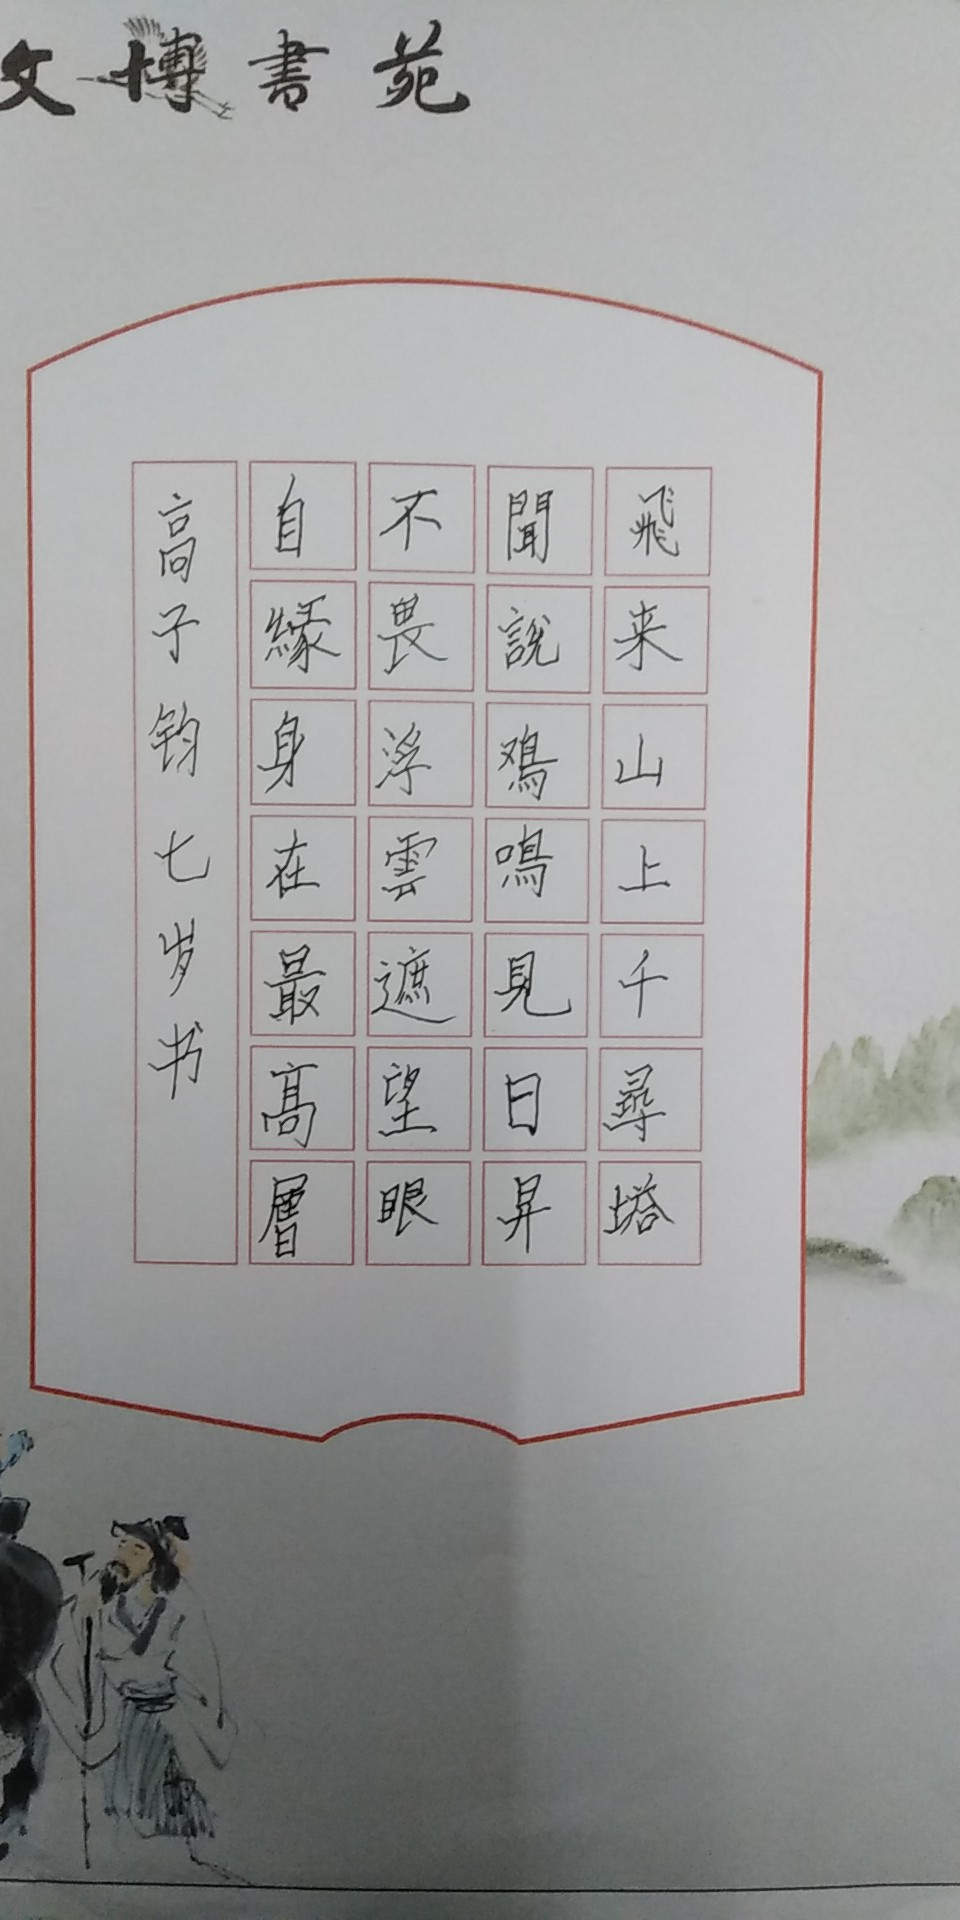 文博書苑
飛来山上千尋塔
聞説鳮鳴見日昇
不畏浮雲遮望眼
自緣身在最高層
高子钧七岁书